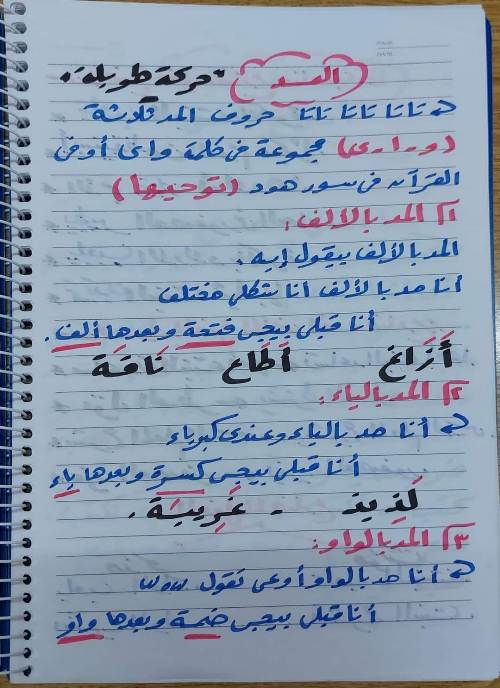 المد "حركة طويلة".
نانا نانا نانا حروف المد ثلاثة
(و، ا، ى) مجموعة في كلمة واى أو في
القرآن في سور هود (نوحيها)
١ المد بالألف:
المد بالألف بيقول إيه.
أنا مد بالألف أنا شكلي مختلف
أنا قبلي بيجي فتحة وبعدها ألف.
أَزَانَ أَطَاع نَاقَة
٢ المد بالياء:
أنا مد بالياء وعندي كبرياء
أنا قبلي بيجي كسرة وبعدها ياء
لَذِيذ - غَرِيبَة.
٣ المد بالواو:
أنا مد بالواو أوعى تقول wow
أنا قبلي بيجي ضمة وبعدها واو